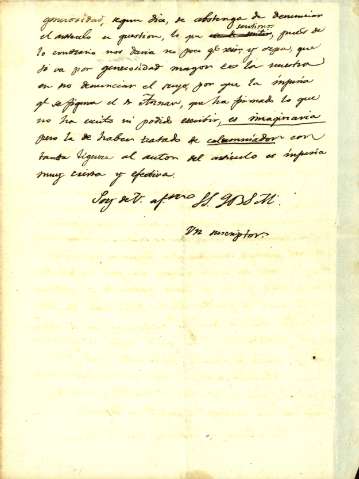 generosidad, segun dia, se abstenga de denunciar
el articulo en question, lo que sentiria, pues de
lo contrario nos daria no poco que reir, y sepa, que
si va por generosidad mayor es la nuestra
en no denunciar el suyo, por que la injuria
qe se figura el Sr, que ha firmado lo que
no ha escrito ni podido escribir, es imaginaria
pero la de haber tratado de calumniador con
tanta ligereza al autor del articulo es injuria
muy cierta y efectiva.
Soy de V. afmo SS. QBSM.
Un suscriptor.